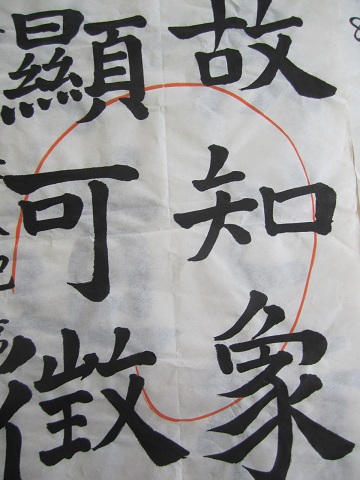 故知象
顯可徵